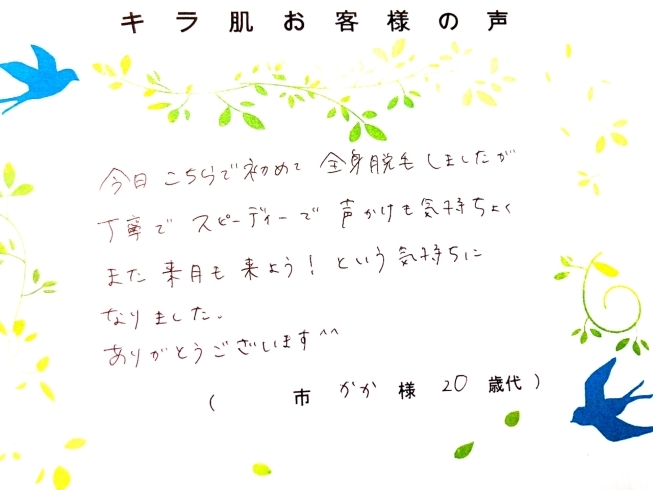 キラ肌お客様の声
今日こちらで初めて全身脱毛しましたが
丁寧でスピーディーで声かけも気持ちよく
また来月も来よう！という気持ちに
なりました。
ありがとうございます^^
（　　　市 かか 様 20 歳代）